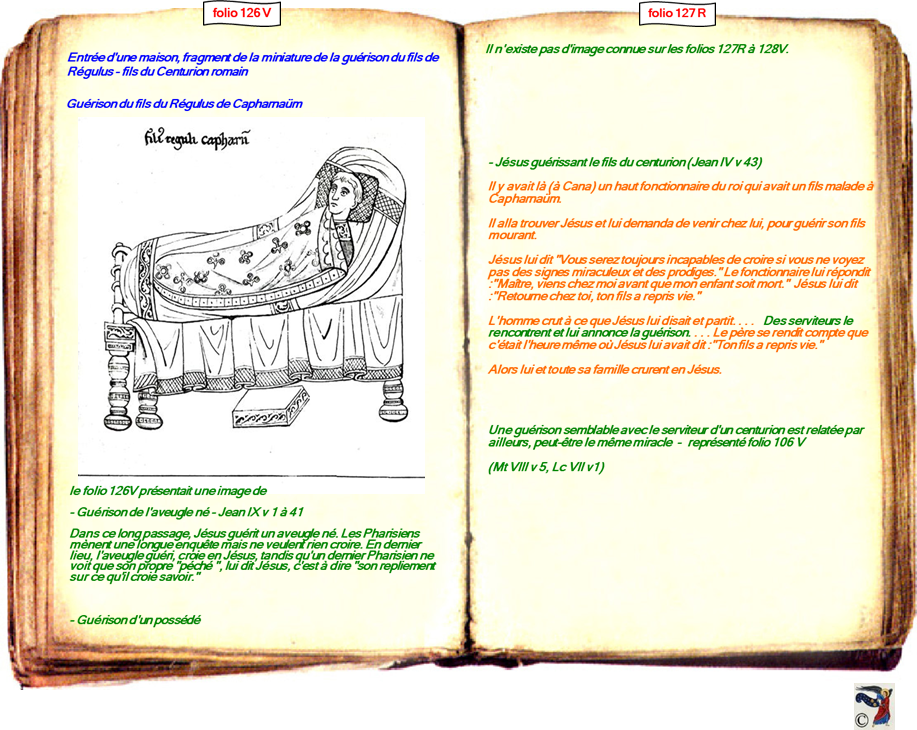 folio 126 V
Entrée d'une maison, fragment de la miniature de la guérison du fils de
Régulus - fils du Centurion romain
Guérison du fils du Régulus de Capharnaüm
reguli
le folio 126V présentait une image de
- Guérison de l'aveugle né - Jean IX v 1 à 41
Dans ce long passage, Jésus guérit un aveugle né. Les Pharisiens
mènent une longue enquête mais ne veulent rien croire. En dernier
lieu, l'aveugle guéri, croie en Jésus, tandis qu'un dernier Pharisien ne
voit que son propre "péché ", lui dit Jésus, c'est à dire "son repliement
sur ce qu'il croie savoir."
- Guérison d'un possédé
folio 127 R
Il n'existe pas d'image connue sur les folios 127R à 128V.
- Jésus guérissant le fils du centurion (Jean IV v 43)
Il y avait là (à Cana) un haut fonctionnaire du roi qui avait un fils malade à
Capharnaüm.
Il alla trouver Jésus et lui demanda de venir chez lui, pour guérir son fils
mourant.
Jésus lui dit "Vous serez toujours incapables de croire si vous ne voyez
pas des signes miraculeux et des prodiges." Le fonctionnaire lui répondit
:"Maître, viens chez moi avant que mon enfant soit mort." Jésus lui dit
:"Retourne chez toi, ton fils a repris vie."
L'homme crut à ce que Jésus lui disait et partit. . . . Des serviteurs le
rencontrent et lui annonce la guérison. . . . Le père se rendit compte que
c'était l'heure même où Jésus lui avait dit :"Ton fils a repris vie."
Alors lui et toute sa famille crurent en Jésus.
Une guérison semblable avec le serviteur d'un centurion est relatée par
ailleurs, peut-être le même miracle - représenté folio 106 V
(Mt VIII v 5, Lc VII v1)
©